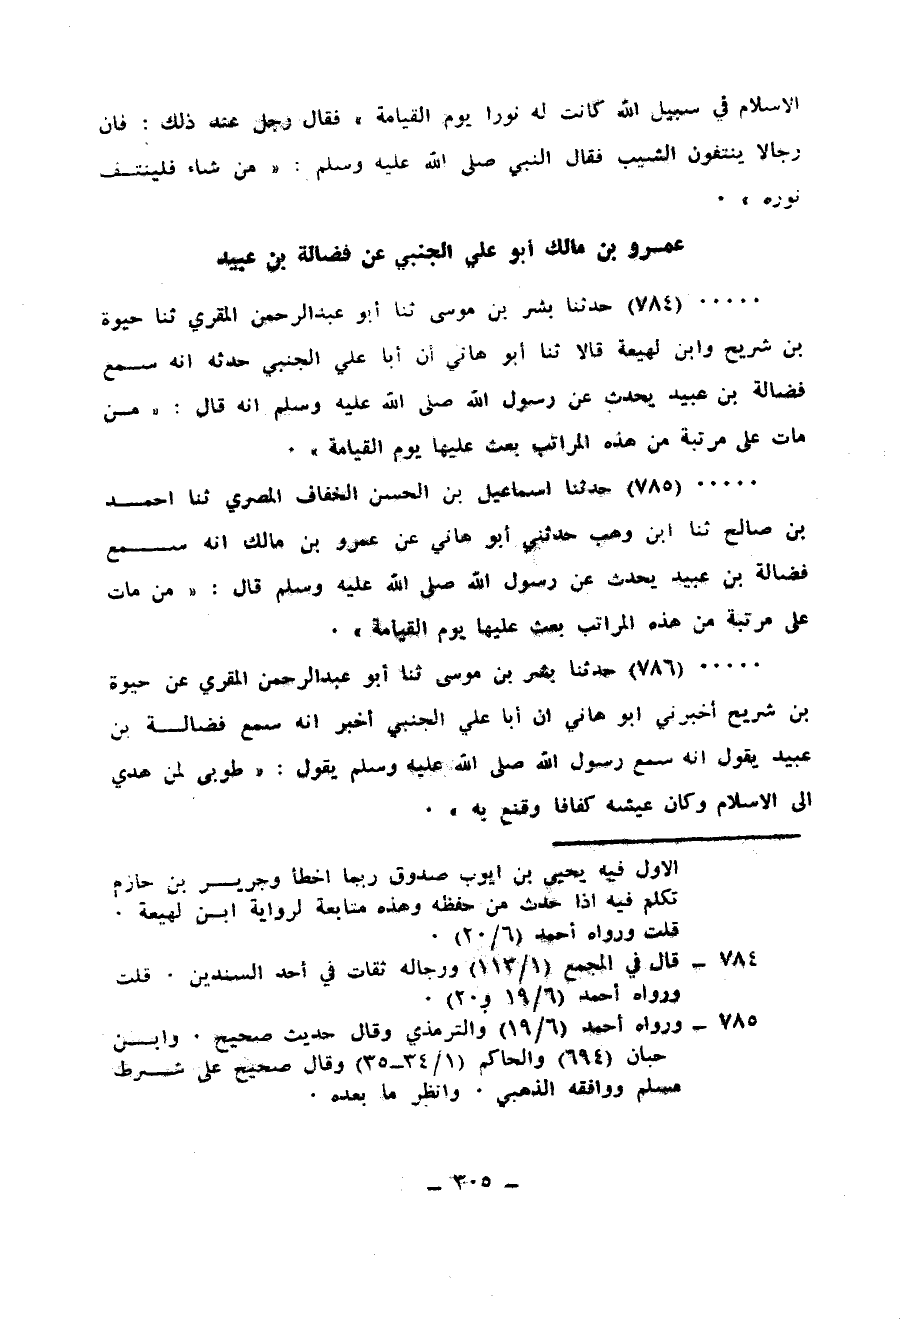 الاسلام في سبيل الله كانت له نورا يوم القيامة » فقال رجل عنه ذلك : فان
رجالا ينتفون الشيب فقال النبي صلى الله عليه وسلم : « من شاء فلينتف
نوره » ٠
عمرو بن مالك أبو علي الجنبي عن فضالة بن عبيد
٠٠٠٠٠ (٧٨٤) حدثنا بشر بن موسى ثنا أبو عبدالرحمن المقري ثنا حيوة
بن شريح وابن لهيعة قالا ثنا أبو هاني أن أبا علي الجنبي حدثه انه سمع
فضالة بن عبيد يحدث عن رسول الله صلى الله عليه وسلم انه قال : « من
مات على مرتبة من هذه المراتب بعث عليها يوم القيامة » ٠
٠٠٠٠٠ (٧٨٥) حدثنا اسماعيل بن الحسن الخفاف المصري ثنا احمد
بن صالح ثنا ابن وهب حدثني أبو هاني عن عمرو بن مالك انه سمع
فضالة بن عبيد يحدث عن رسول الله صلى الله عليه وسلم قال : « من مات
على مرتبة من هذه المراتب بعث عليها يوم القيامة » ٠
٠٠٠٠٠ (٧٨٦) حدثنا بشر بن موسى ثنا أبو عبدالرحمن المقري عن حيوة
بن شريح أخبرني ابو هاني ان أبا علي الجنبي أخبر انه سمع فضالة بن
عبيد يقول انه سمع رسول الله صلى الله عليه وسلم يقول : « طوبى لمن هدي
الى الاسلام وكان عيشه كفافا وقنع به » ٠
الاول فيه يحيى بن ايوب صدوق ربما اخطأ وجرير بن حازم
تكلم فيه اذا حدث من حفظه وهذه متابعة لرواية ابن لهيعة ٠
قلت ورواه أحمد (٢٠/٦) ٠
٧٨٤ ــ قال في المجمع (١١٣/١) ورجاله ثقات في أحد السندين ٠ قلت
ورواه أحمد (١٩/٦ و٢٠) ٠
٧٨٥ ــ ورواه أحمد (١٩/٦) والترمذي وقال حديث صحيح ٠ وابن
حبان (٦٩٤) والحاكم (٣٤/١ــ٣٥) وقال صحيح على شرط
مسلم ووافقه الذهبي ٠ وانظر ما بعده ٠
ــ ٣٠٥ ــ